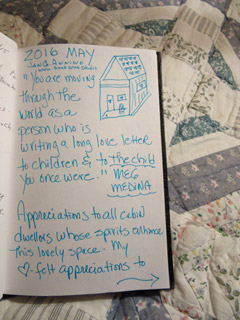 2016 MAY
"You are moving
through the
world as a
person who is
writing a long love letter
to children & to the child
you once were." MEG
MEDINA
Appreciations to all cabin
dwellers whose spirits enhance
this lovely space. My
♡-felt appreciations to
→